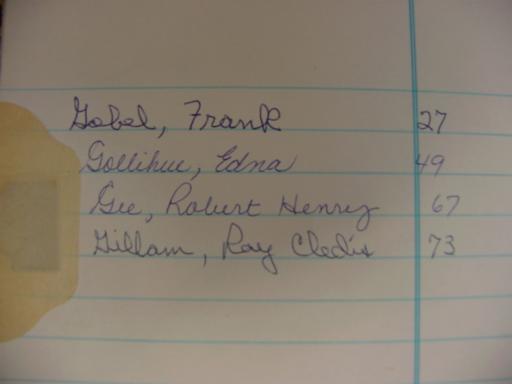 Gobel, Frank 27
Gollihue, Edna 49
Gee, Robert Henry 67
Gillam, Ray Cledis 73